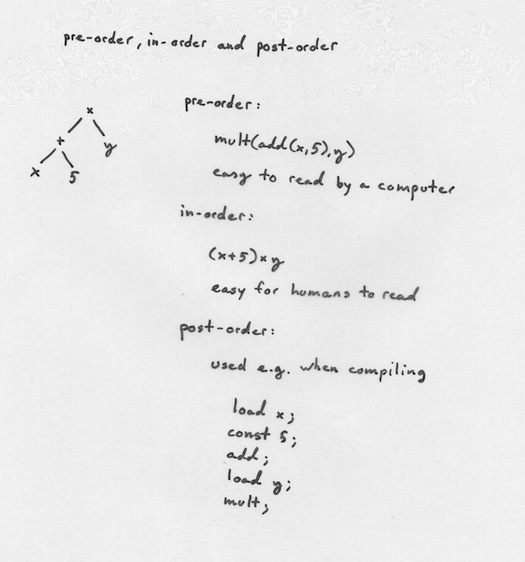 pre-order, in-order and post-order
×
+
y
x
5
pre-order:
mult(add(x,5),y)
easy to read by a computer
in-order:
(x+5)×y
easy for humans to read
post-order:
used e.g. when compiling
load x;
const 5;
add;
load y;
mult;